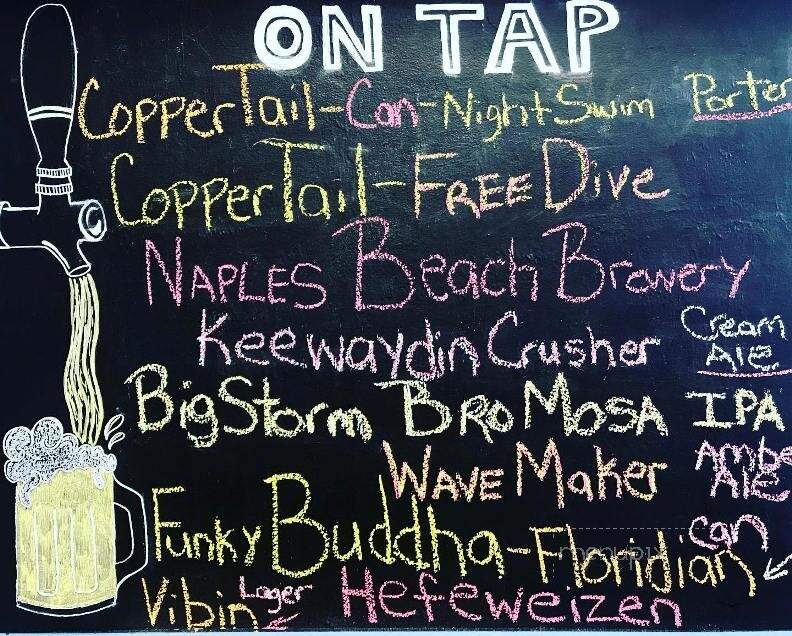 ON TAP
CopperTail-Can-NightSwim Porter
CopperTail-FREE Dive
NAPLES Beach Brewery
Keewaydin Crusher Cream ALE
BigStorm BRO MOSA IPA
WAVE Maker Ambe ALE
Funky Buddha-Floridian can
Vibin Lager Hefeweizen